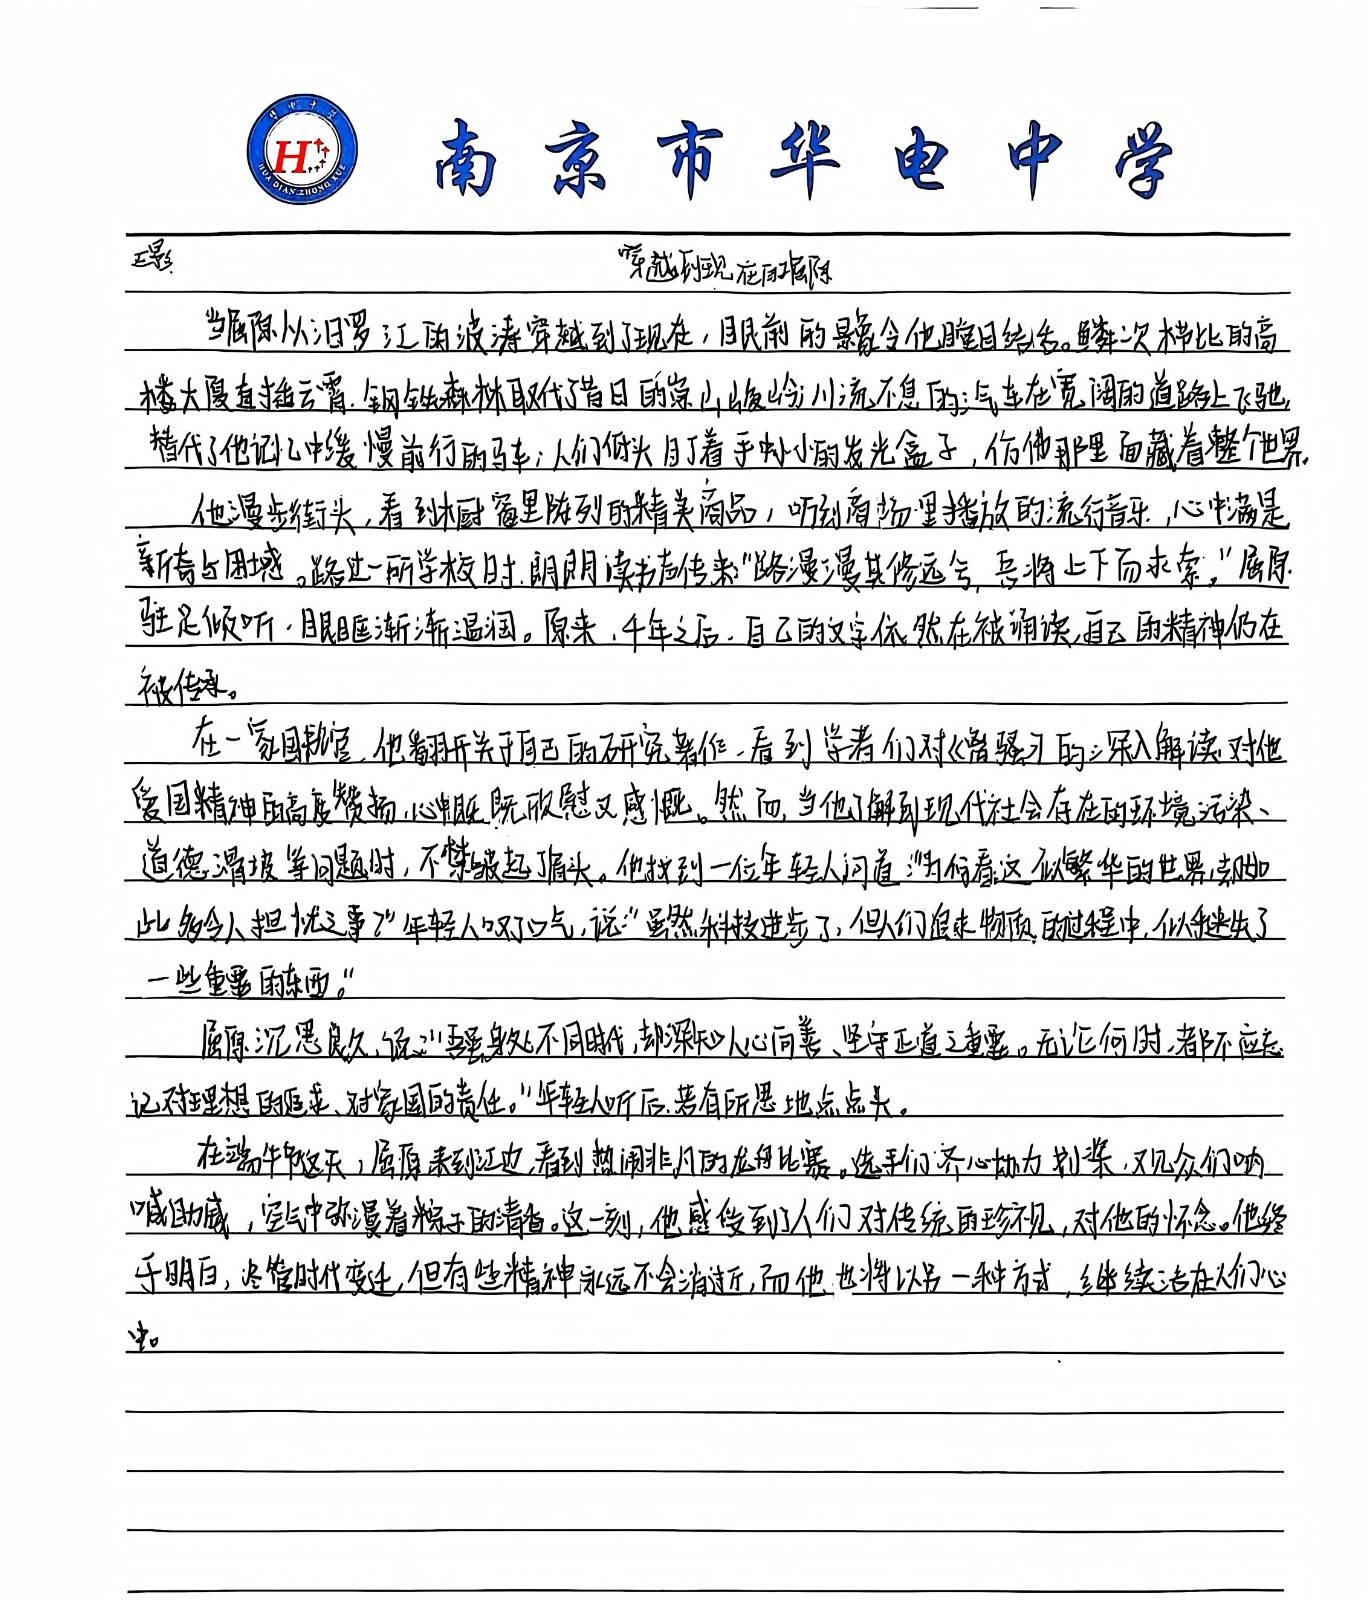 华电中学
H
HUA DIAN ZHONG XUE
南京市华电中学
穿越到现在的屈原
当屈原从汨罗江的波涛穿越到了现在，眼前的景象令他瞠目结舌。鳞次栉比的高
楼大厦直插云霄，钢铁森林取代了昔日的崇山峻岭；川流不息的汽车在宽阔的道路上飞驰，
替代了他记忆中缓慢前行的马车；人们低头盯着手中小小的发光盒子，仿佛那里面藏着整个世界。
他漫步街头，看到橱窗里陈列的精美商品，听到商场里播放的流行音乐，心中满是
新奇与困惑。路过一所学校时，朗朗读书声传来：“路漫漫其修远兮，吾将上下而求索。”屈原
驻足倾听，眼眶渐渐湿润。原来，千年之后，自己的文字依然在被诵读，自己的精神仍在
被传承。
在一家图书馆，他翻开关于自己的研究著作，看到学者们对《离骚》的深入解读，对他
爱国精神的高度赞扬，心中既欣慰又感慨。然而，当他了解到现代社会存在的环境污染、
道德滑坡等问题时，不禁皱起了眉头。他找到一位年轻人问道：“为何看这似繁华的世界，却如
此多令人担忧之事？”年轻人叹了口气，说：“虽然科技进步了，但人们追求物质的过程中，似乎迷失了
一些重要的东西。”
屈原沉思良久，说：“吾虽身处不同时代，却深知人心向善、坚守正道之重要。无论何时，都不应忘
记对理想的追求、对家国的责任。”年轻人听后，若有所思地点点头。
在端午节这天，屈原来到江边，看到热闹非凡的龙舟比赛。选手们齐心协力划桨，观众们呐
喊助威，空气中弥漫着粽子的清香。这一刻，他感受到了人们对传统的珍视，对他的怀念。他终
于明白，尽管时代变迁，但有些精神永远不会消逝，而他也将以另一种方式，继续活在人们心
中。